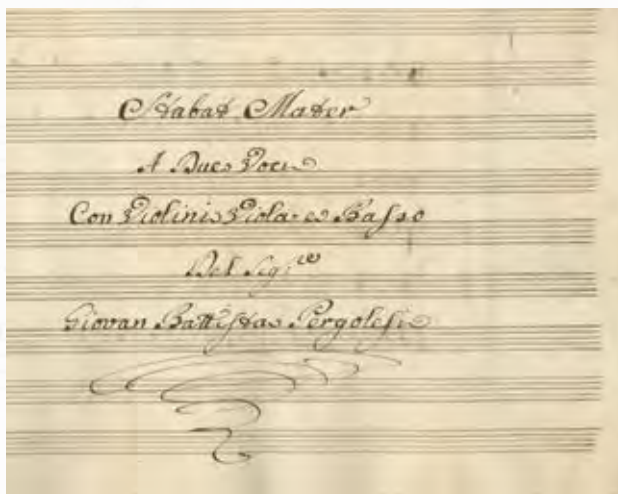 Stabat Mater
A Due Voci
Con Violini Viola e Basso
Del Sig.re
Giovan Battista Pergolesi